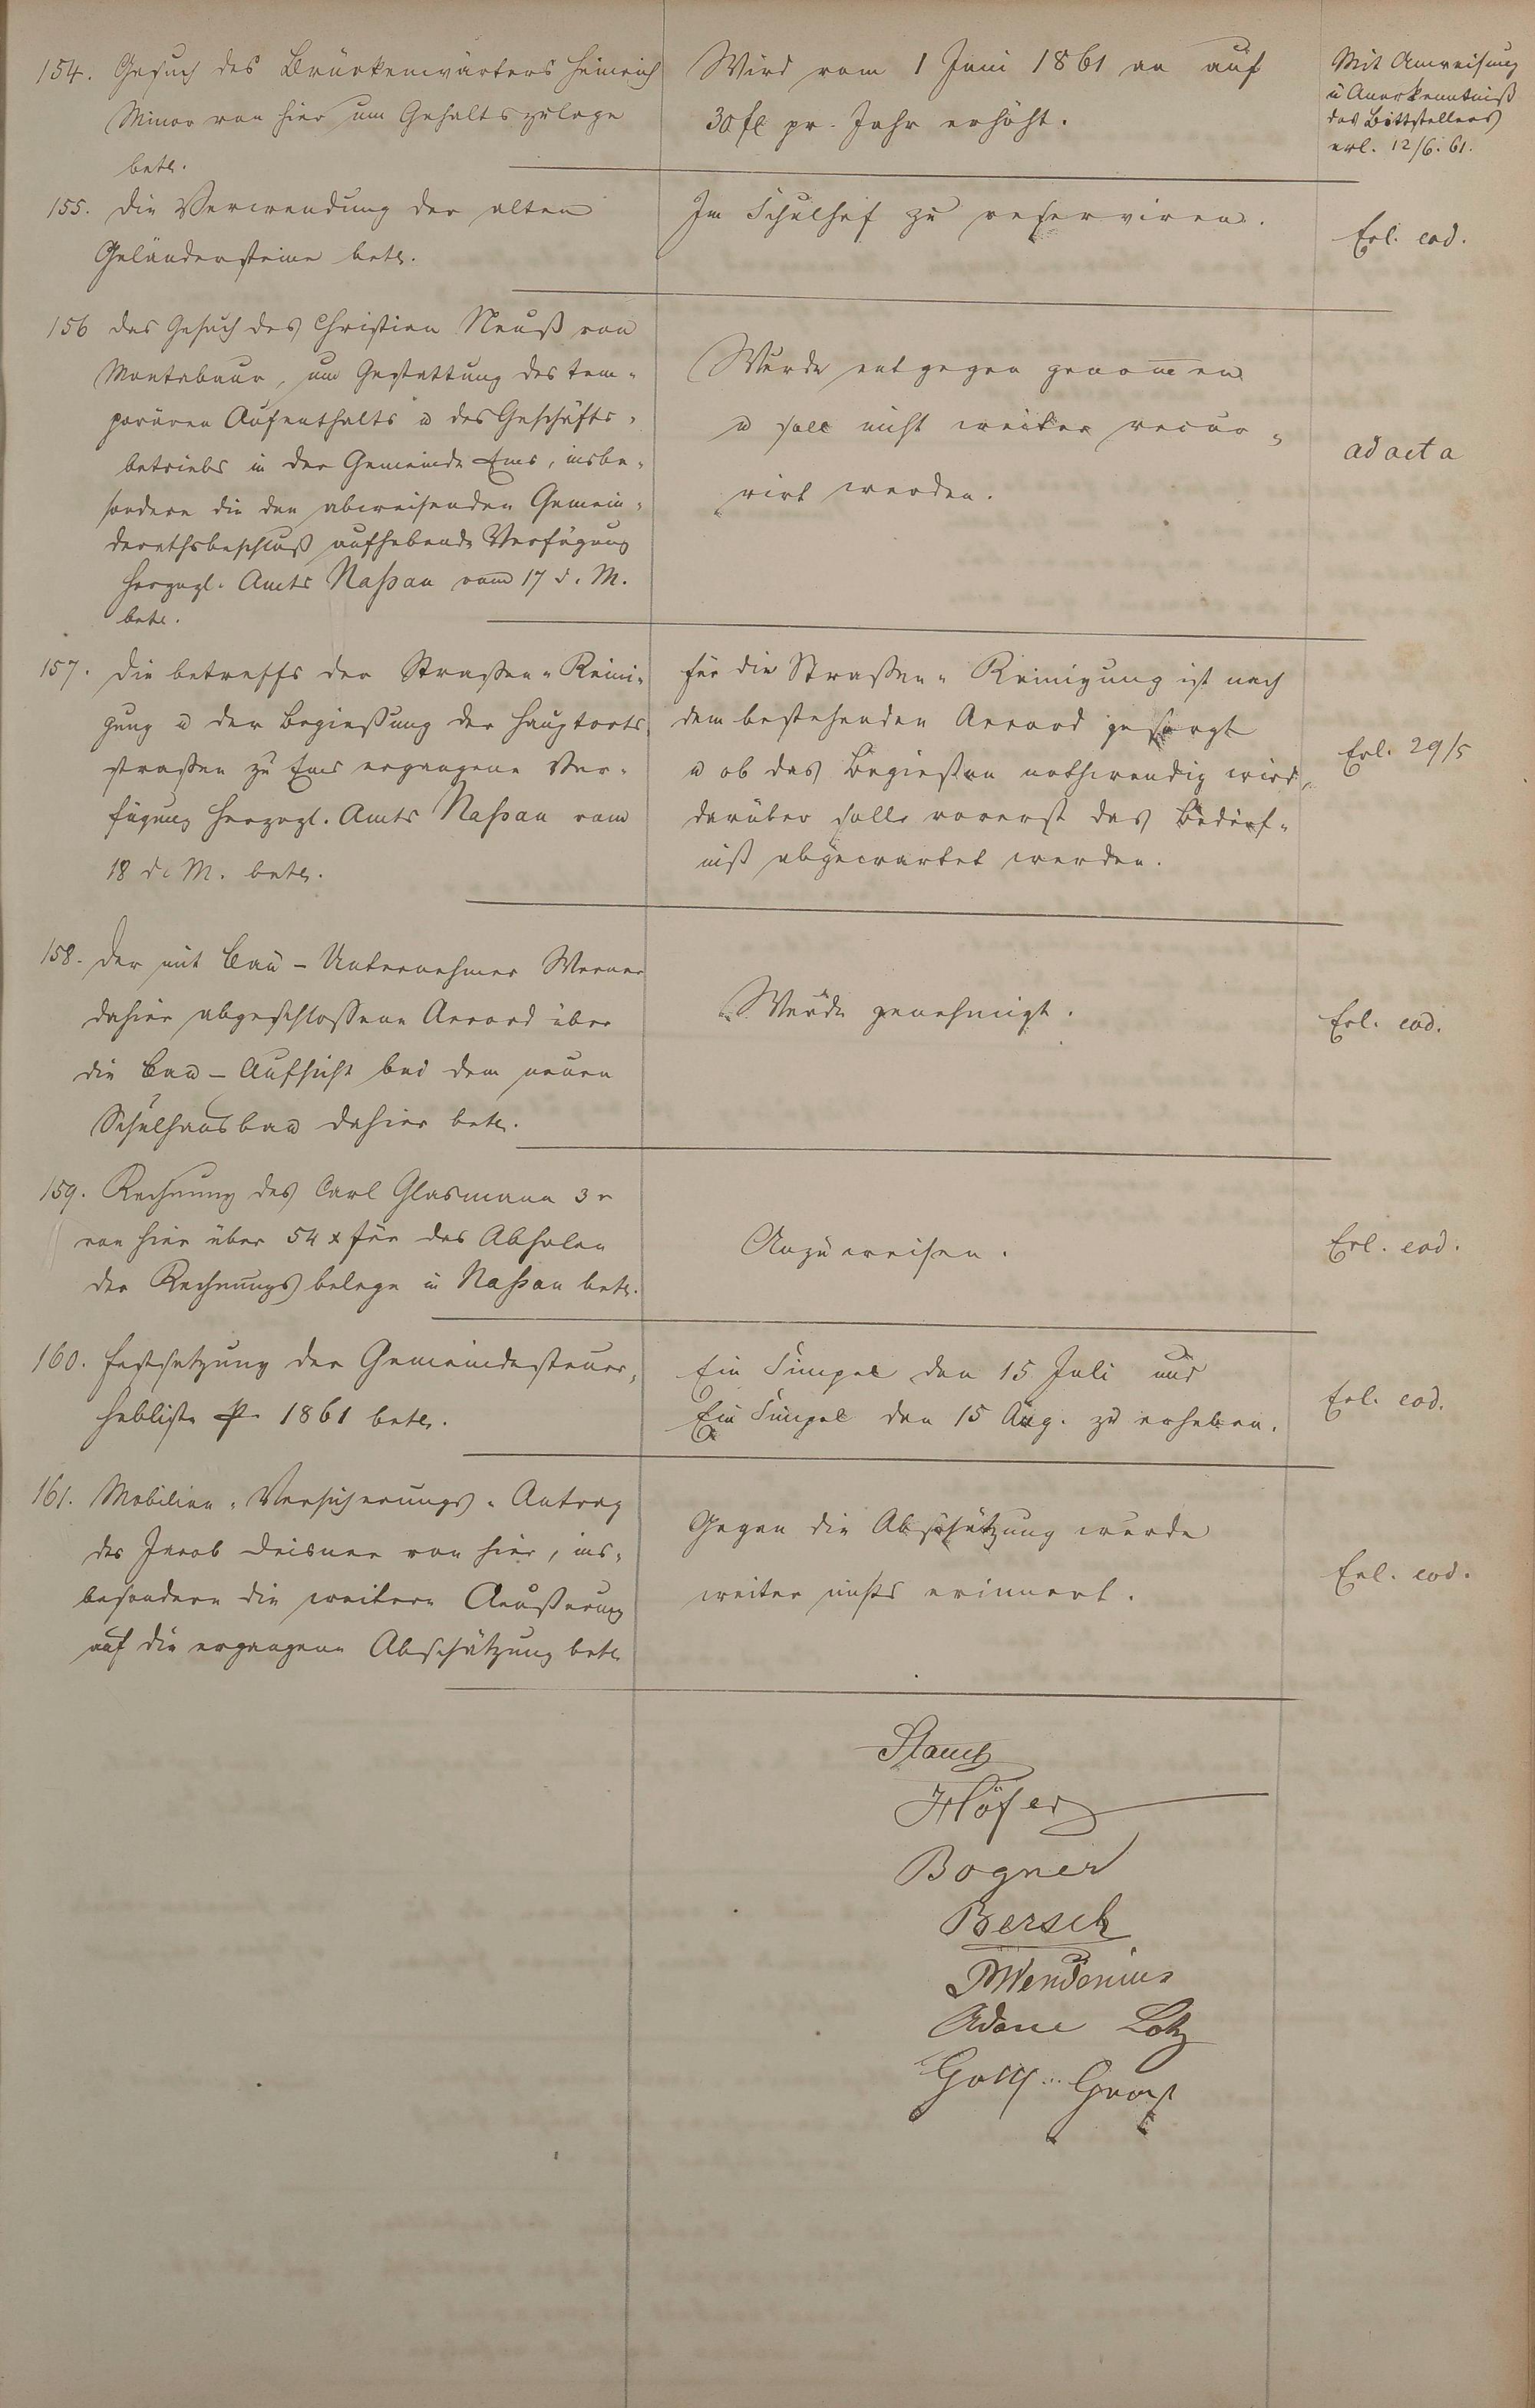 154. Gesuch des Brückenwärters Heinrich
Minor von hier um Gehaltszulage
betr.
Wird vom 1 Juni 1861 an auf
30 fl pr. Jahr erhöht.
Mit Anweisung
u Anerkenntniß
des Bittstellers
erl. 12/6. 61.
155. Die Verwendung der alten
Geländersteine betr.
Im Schulhof zu reserviren.
Erl. eod.
156 Das Gesuch des Christian Neuß von
Montabaur, um Gestattung des tem-
porären Aufenthalts u des Geschäfts-
betriebs in der Gemeinde Ems, insbe-
sondere die den abweisenden Gemein-
derathsbeschluß aufhebende Verfügung
Herzogl. Amts Naßau vom 17 d. M.
betr.
Wurde entgegen genommen
u soll nicht weiter recur-
rirt werden.
ad acta
157. Die betreffs der Straßen-Reini-
gung u der Begießung der Hauptorts-
straßen zu Ems ergangene Ver-
fügung Herzogl. Amts Naßau vom
18 d. M. betr.
Für die Straßen-Reinigung ist nach
dem bestehenden Accord gesorgt
u ob das Begießen nothwendig wird,
darüber solle vorerst das Bedürf-
niß abgewartet werden.
Erl. 29/5
158. Der mit Bau-Unternehmer Werner
dahier abgeschlossene Accord über
die Bau-Aufsicht bei dem neuen
Schulhausbau dahier betr.
Wurde genehmigt.
Erl. eod.
159. Rechnung des Carl Glasmann 3r
von hier über 54 x für das Abholen
der Rechnungsbelege in Naßau betr.
Anzuweisen.
Erl. eod.
160. Festsetzung der Gemeindesteuer-
hebliste pr 1861 betr.
Ein Simpel den 15 Juli und
Ein Simpel den 15 Aug. zu erheben.
Erl. eod.
161. Mobilien-Versicherungs-Antrag
des Jacob Deisner von hier, ins-
besondere die weitere Aeußerung
auf die ergangene Abschätzung betr
Gegen die Abschätzung wurde
weiter nichts erinnert.
Erl. eod.
Höfer
Bogner
Bersch
Adam Lotz